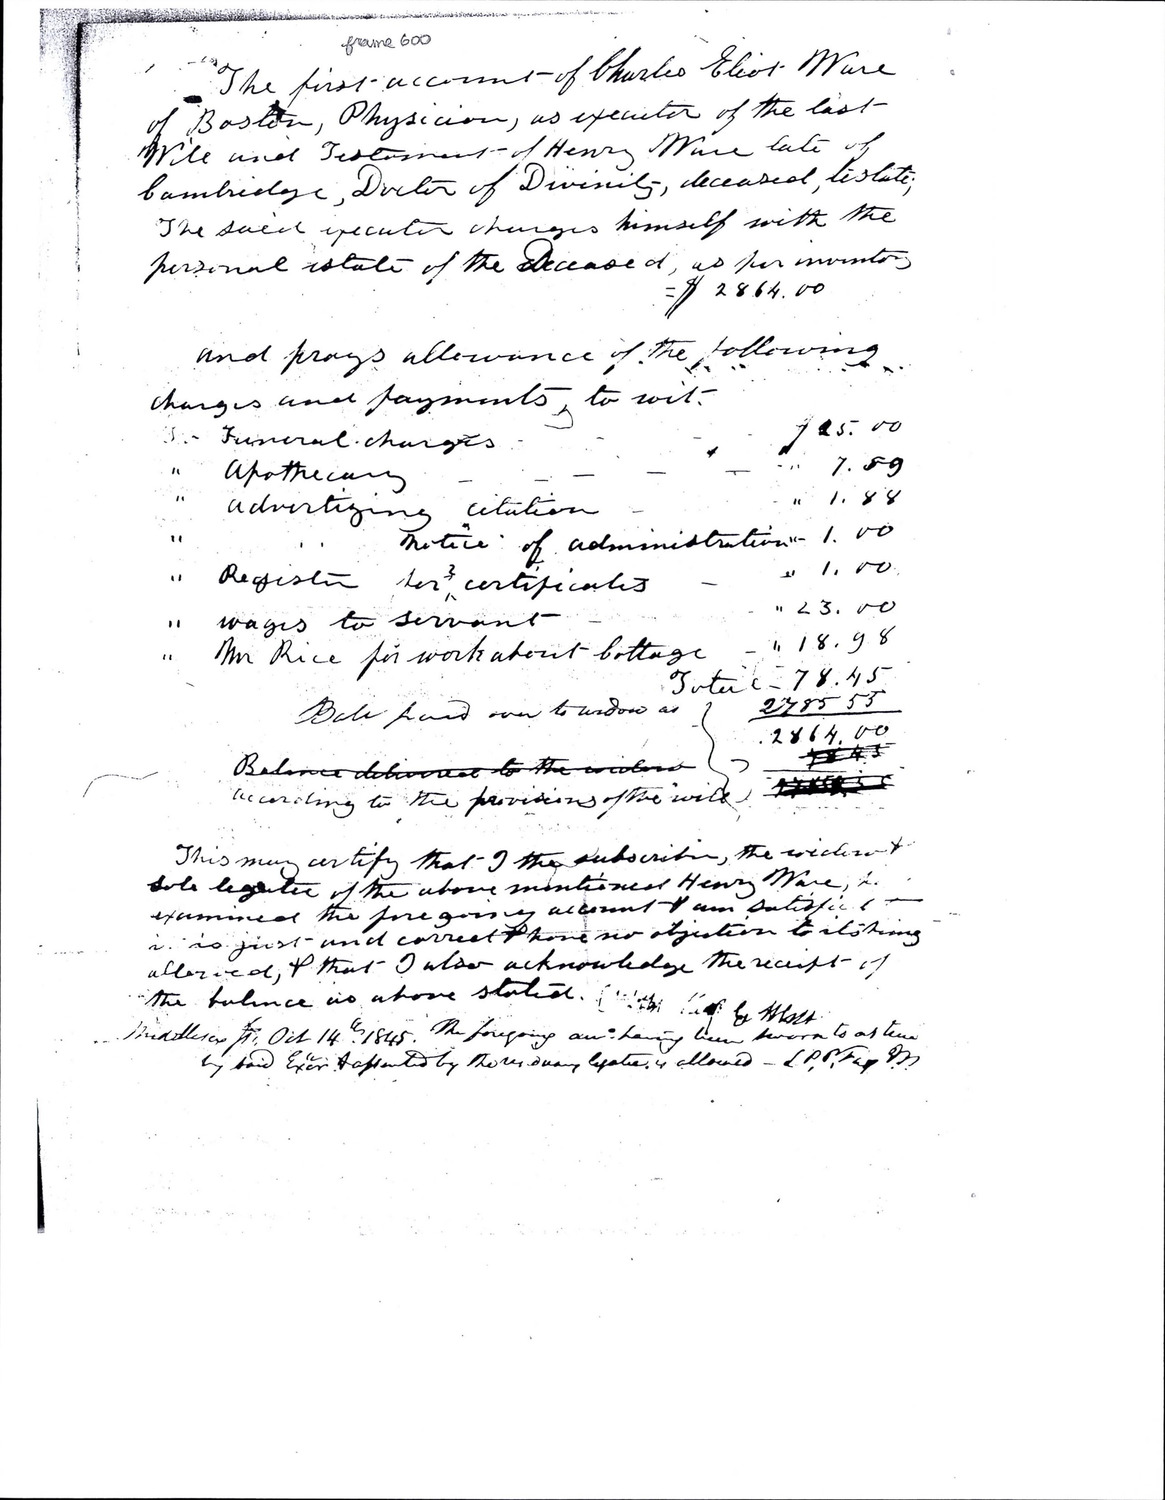 frame 600
The first account of Charles Eliot Ware
of Boston, Physician, as executor of the last
Will and Testament of Henry Ware late of
Cambridge, Doctor of Divinity, deceased, testate;
The said executor charges himself with the
personal estate of the deceased, as per inventory
= $ 2864.00
and prays allowance of the following
charges and payments, to wit.
Funeral charges - - - $25.00
" Apothecary - - - - " 7.59
" advertizing citation - " 1.88
" " notice of administration " 1.00
" Register for 3 certificates - " 1.00
" wages to servant - " 23.00
" Mr Rice for work about Cottage - " 18.98
Total - 78.45
Bale paid over to widow as 2785 55
2864.00
Balance delivered to the widow 78 45
according to the provisions of the will
This may certify that I the subscriber, the widow &
sole legatee of the above mentioned Henry Ware,
examined the foregoing account & am satisfied
is just and correct & have no objection to its being
allowed, & that I also acknowledge the receipt of
the balance as above stated.
Middlesex ss. Oct 14th 1845. The foregoing acct having been sworn to as true
by said Exor & assented by the residuary legatee is allowed - S. P. P. Fay